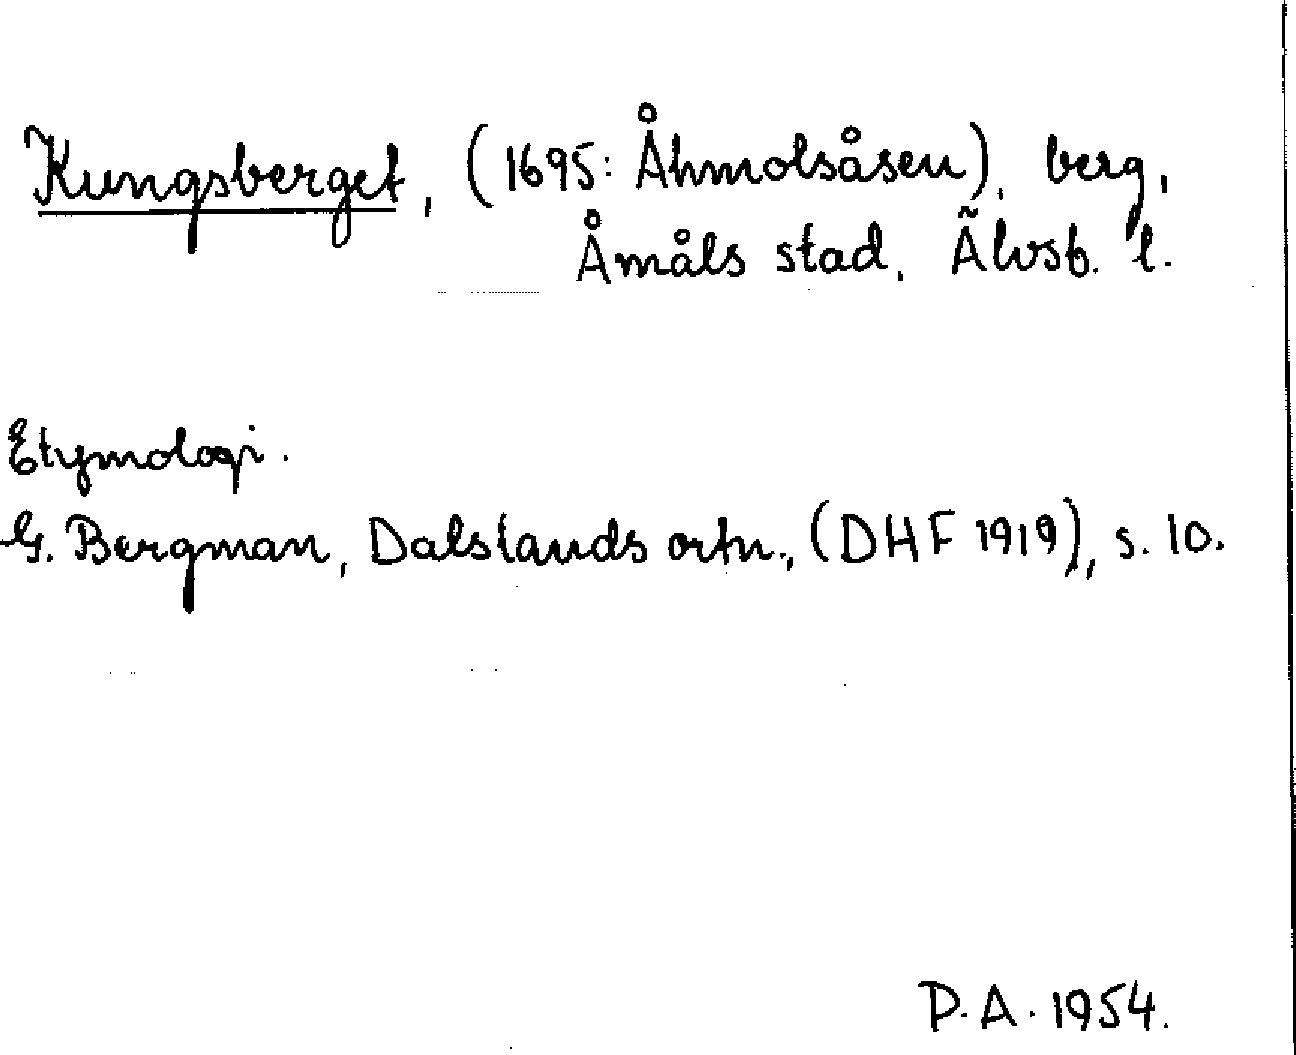 Kungsberget, (1695: Åhmolsåsen), berg,
Åmåls stad, Älvsb. l.
Etymologi.
G. Bergman, Dalslands ortn., (DHF 1919), s. 10.
P.A. 1954.